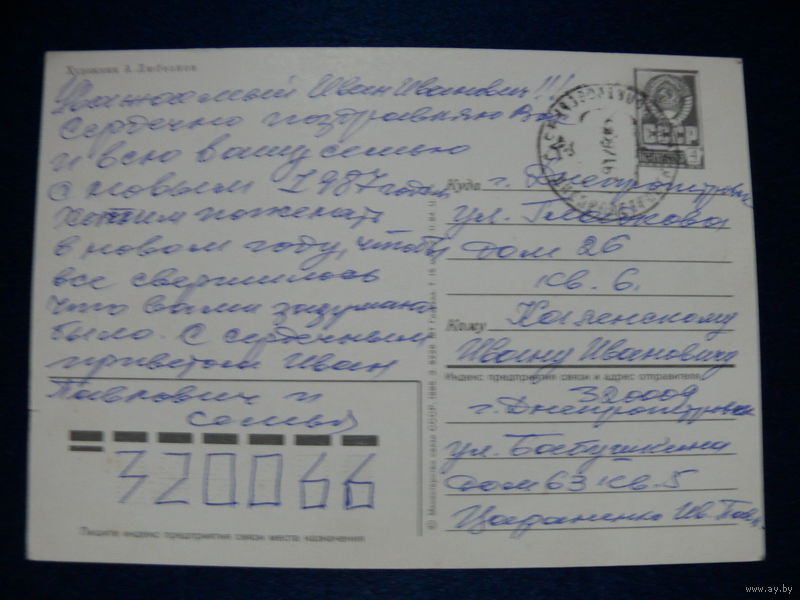 Художник А. Любезнов
Уважаемый Иван Иванович!!!
Сердечно поздравляю Вас
и всю вашу семью
с новым 1987 годом
хотим пожелать
в новом году, чтобы
все свершилось
что вами задумано
было. С сердечным
приветом Иван
Павлович и
семья
320066
Пишите индекс предприятия связи места назначения
© Министерство связи СССР, 1986.
СССР
Куда г. Днепропетровск
ул. Глаголева
дом 26
кв. 6.
Кому
Ивану Ивановичу
Индекс предприятия связи и адрес отправителя
320009
г. Днепропетровск
ул. Бабушкина
дом 63 кв. 5
Ив. Павл.
www.ay.by